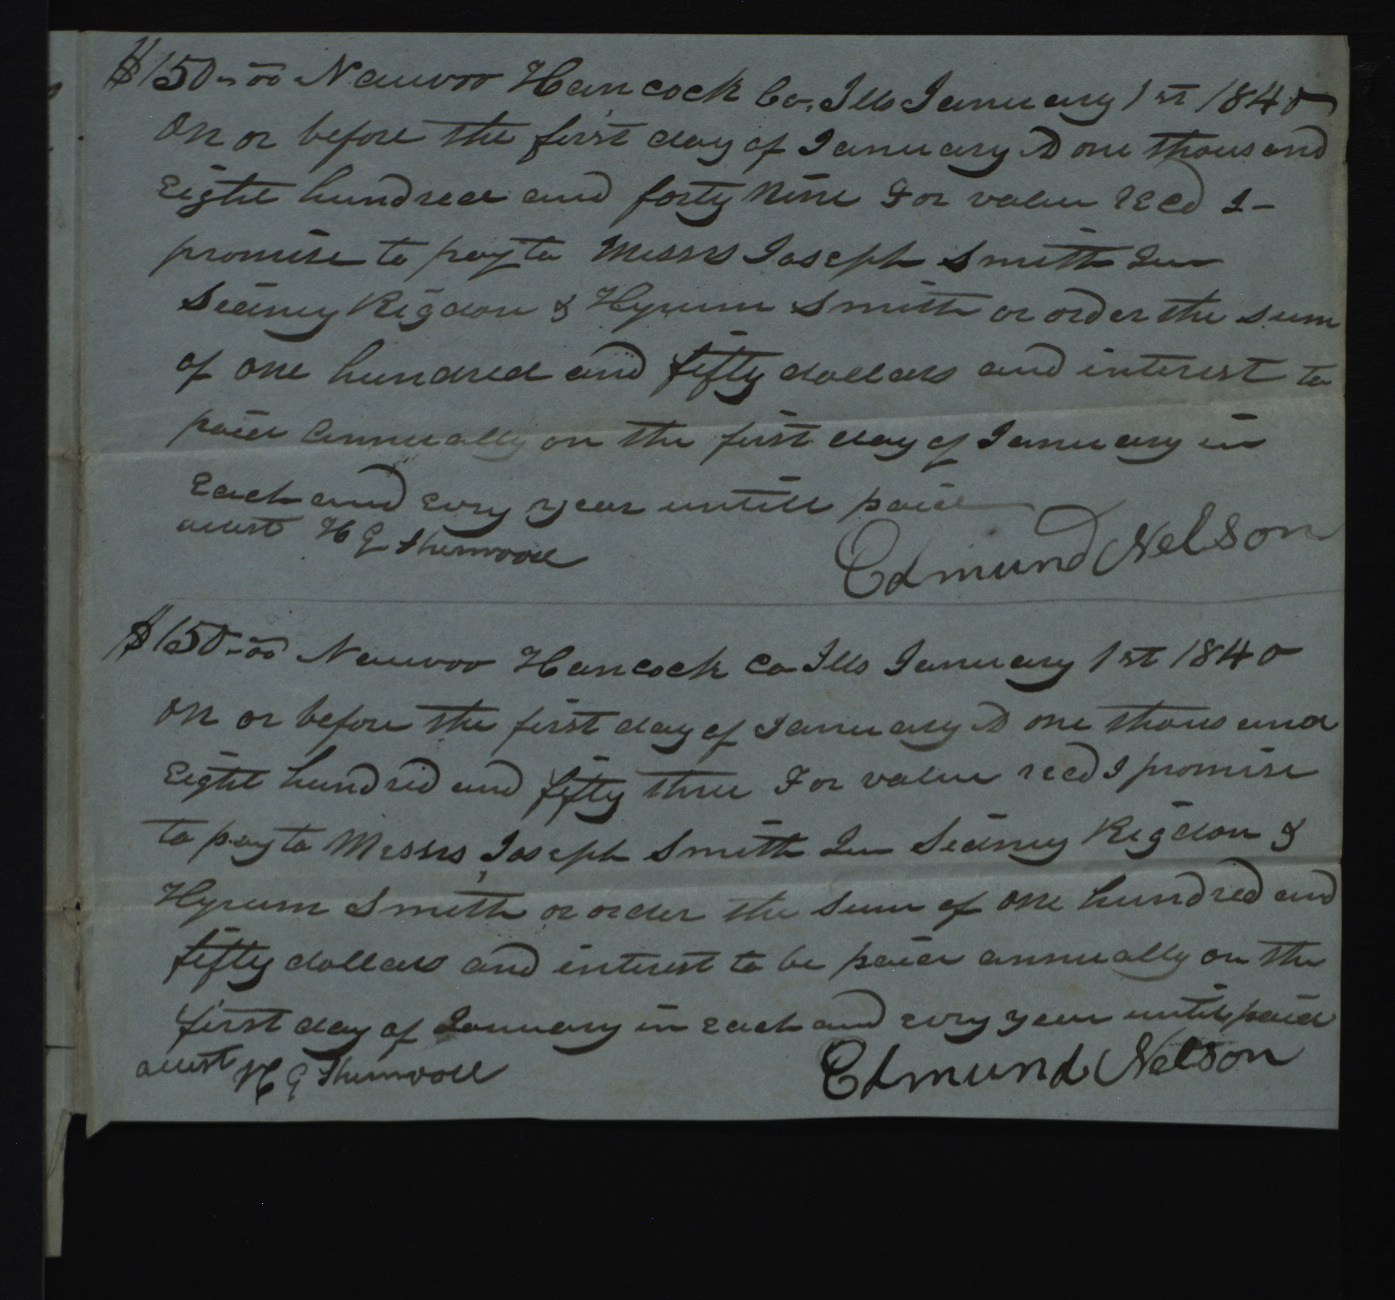 $150-00 Nauvoo Hancock Co, Ills January 1st 1840
On or before the first day of January AD one thousand
Eight hundred and forty Nine For value recd I-
promise to pay to Messrs Joseph Smith Jun
Sidney Rigdon & Hyrum Smith or order the sum
of one hundred and fifty dollars and interest to
paid annually on the first day of January in
Each and evry year untill paid
attest H G Sherwood
Edmund Nelson
$150-00 Nauvoo Hancock Co Ills January 1st 1840
On or before the first day of January AD one thousand
Eight hundred and fifty three For value recd I promise
to pay to Messrs, Joseph Smith Jun Sidney Rigdon &
Hyrum Smith or order the sum of one hundred and
fifty dollars and interest to be paid annually on the
first day of January in each and evry year until paid
attest H G Sherwood
Edmund Nelson